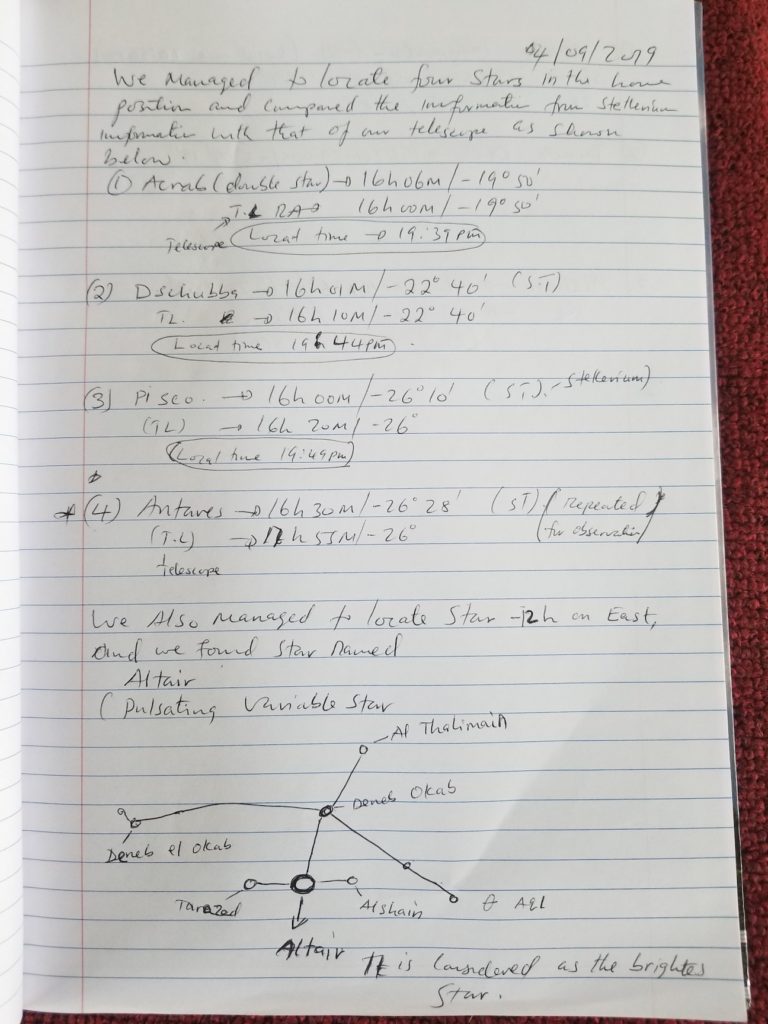 04/09/2019
We Managed to locate four Stars in the home
position and compared the information from Stellerium
information with that of our telescope as shown
below.
(1) Acrab (double star) → 16h 06M/-19° 50'
T.L RA → 16h 00M/-19° 50'
Telescope
Local time → 19:39pm
(2) Dschubba → 16h 01M/-22° 40' (S.T)
TL. → 16h 10M/-22° 40'
Local time 19h 44pm
(3) Piseo. → 16h 00M/-26° 10' (ST). - Stellerium)
(TL) → 16h 20M/-26°
Local time 19:49pm
(4) Antares → 16h 30M/-26° 28' (ST) (Repeated
for observation)
(T.L) → 17h 55M/-26°
telescope
We Also Managed to locate Star -12h on East,
and we found Star Named
Altair
( Pulsating Variable Star
Al Thalimain
Deneb Okab
Deneb el Okab
Tarazed
Alshain
θ AQL
Altair
It is Considered as the brightes
Star.